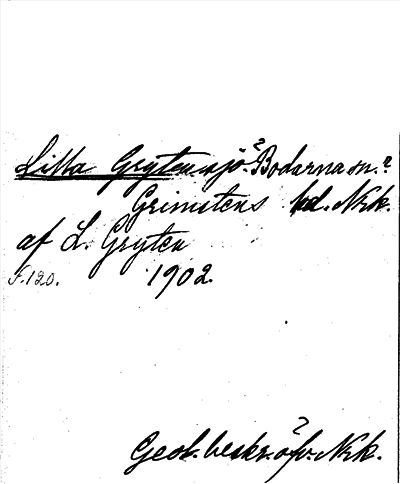 Lilla Gryten sjö? Bodarna sn.?
Grimstens hd. Nrk.
af L. Gryten
F.120. 1902.
Geol. beskr. öfv. Nrk.